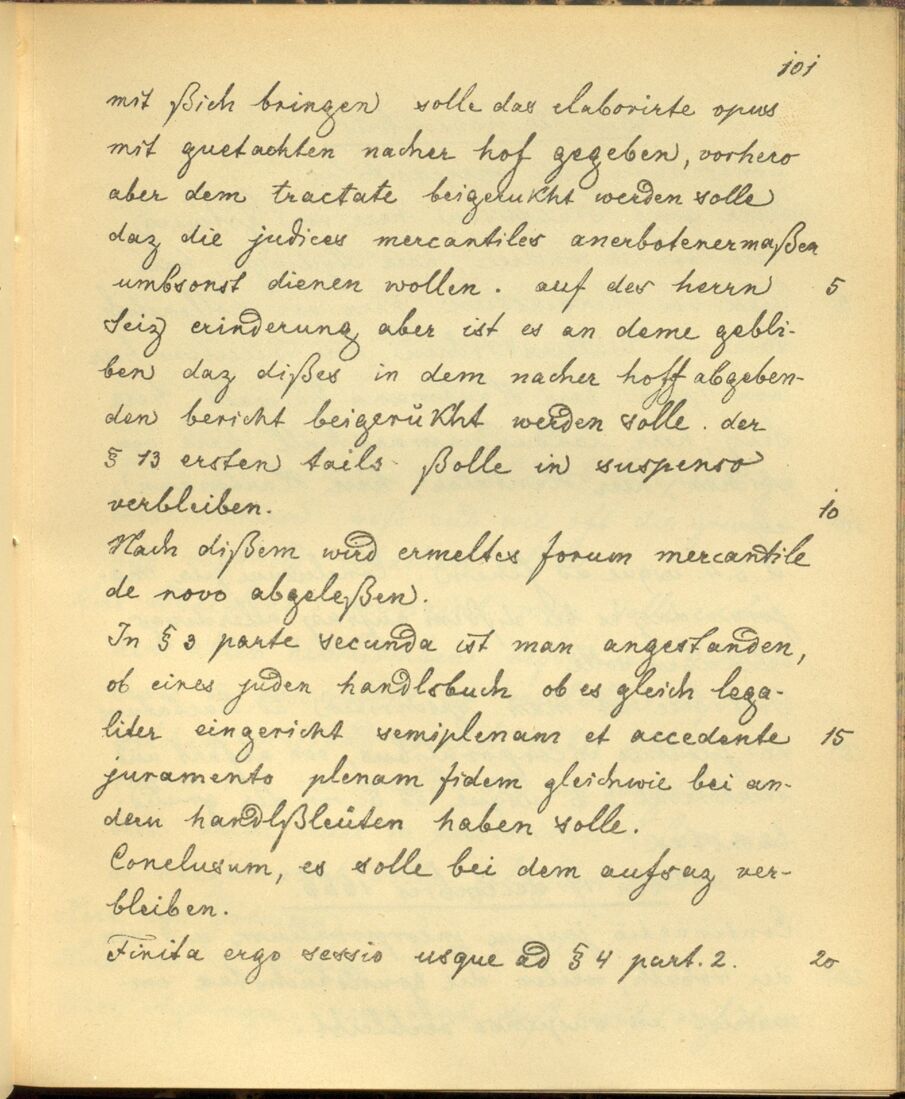 101
mit ßich bringen solle das elaborirte opus
mit guetachten nacher hof gegeben, vorhero
aber dem tractate beigerukht werden solle
daz die judices mercantiles anerbotenermaßen
umbsonst dienen wollen. auf des herrn 5
Seiz erinderung aber ist es an deme gebli-
ben daz dißes in dem nacher hoff abgeben-
den bericht beigerŭkht werden solle. der
§ 13 ersten tails ßolle in suspenso
verbleiben. 10
Nach dißem wird ermeltes forum mercantile
de novo abgeleßen.
In § 3 parte secunda ist man angestanden,
ob eines juden handlsbuch ob es gleich lega-
liter eingericht semiplenam et accedente 15
juramento plenam fidem gleichwie bei an-
dern handlßleüten haben solle.
Conclusum, es solle bei dem aufsaz ver-
bleiben.
Finita ergo sessio usque ad § 4 part. 2. 20